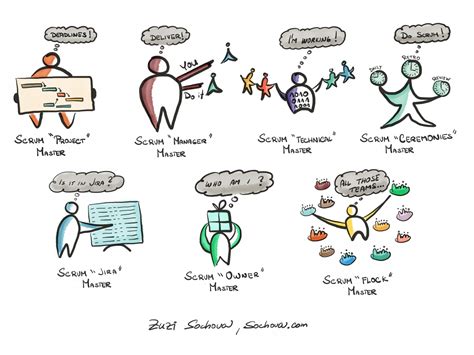 DEADLINES!
DELIVER!
I'M WORKING!
DO SCRUM!
YOU
DO IT
DAILY
RETRO
REVIEW
SCRUM "PROJECT"
MASTER
SCRUM "MANAGER"
MASTER
SCRUM "TECHNICAL"
MASTER
SCRUM "CEREMONIES"
MASTER
IS IT IN JIRA?
WHO AM I?
ALL THOSE
TEAMS...
SCRUM "JIRA"
MASTER
SCRUM "OWNER"
MASTER
SCRUM "FLOCK"
MASTER
ZUZI SOCHOVA, SOCHOVA.COM